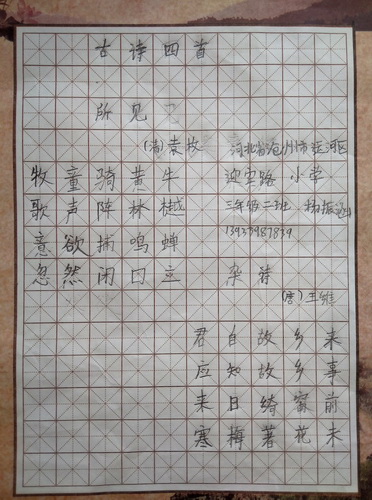 古诗四首
所见
(清)袁枚 河北省沧州市运河区
牧童骑黄牛 迎宾路小学
歌声阵林樾 三年级二班
意欲捕鸣蝉
忽然闭口立 杂诗
(唐)王维
君自故乡来
应知故乡事
来日绮窗前
寒梅著花未